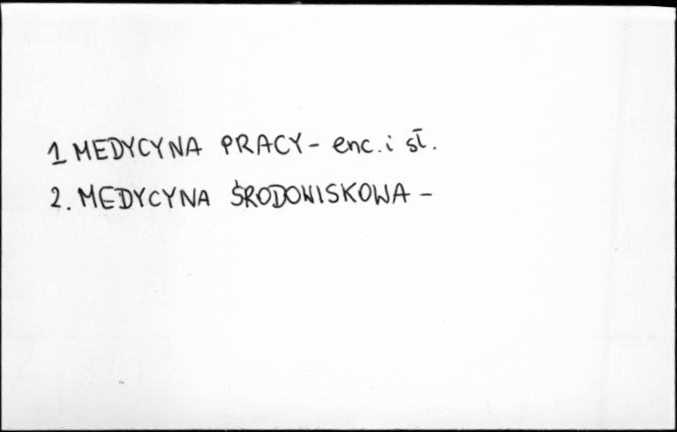 1 MEDYCYNA PRACY - enc. i sł.
2. MEDYCYNA ŚRODOWISKOWA -